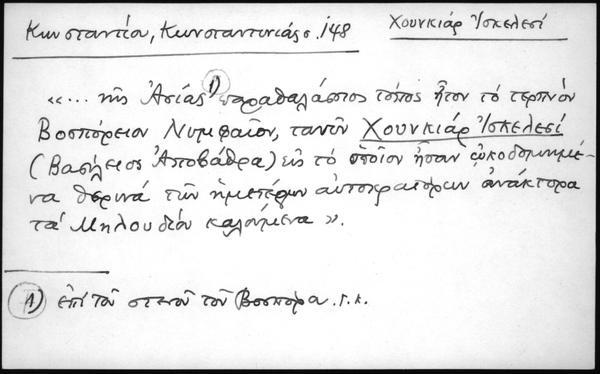 Κωνσταντίου, Κωνσταντινιάς σ. 148 Χουνκιάρ Ἰσκελεσί
«... τῆς Ἀσίας 1) παραθαλάσσιος τόπος ἦτον τὸ τερπνὸν
Βοσπόρειον Νυμφαῖον, τανῦν Χουνκιάρ Ἰσκελεσί
(Βασίλειος Ἀποβάθρα) εἰς τὸ ὁποῖον ἦσαν ᾠκοδομημέ-
να θερινὰ τῶν ἡμετέρων αὐτοκρατόρων ἀνάκτορα
τὰ Μηλουδίου καλούμενα ».
1) ἐπὶ τοῦ στενοῦ τοῦ Βοσπόρου. Γ.Κ.